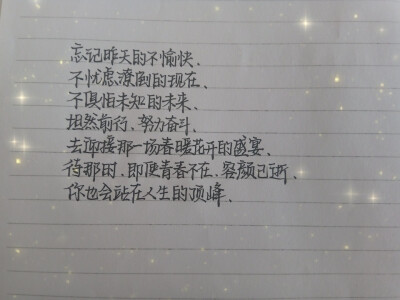 忘记昨天的不愉快、
不忧虑潦剧的现在、
不惧怕未知的未来、
坦然前行、努力奋斗、
去迎接那一场春暖花开的盛宴、
待那时、即便青春不在、容颜已逝、
你也会站在人生的顶峰、